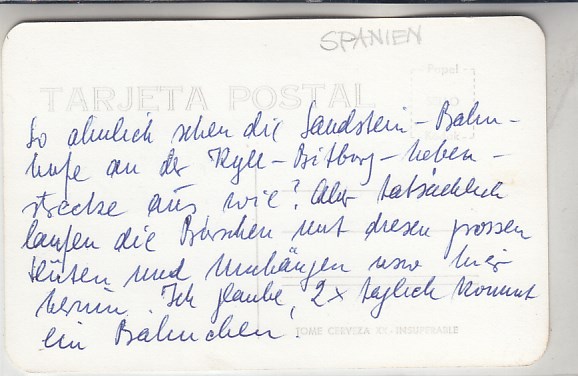 SPANIEN
TARJETA POSTAL
So ähnlich sehen die Sandstein-Bahn-
hofe an der Kyll-Bitburg-Neben-
strecke aus wie? Aber tatsächlich
laufen die Burschen mit diesen grossen
Hüten und Umhängen usw hier
herum. Ich glaube, 2x täglich kommt
ein Bähnchen.
TOME CERVEZA XX-INSUPERABLE